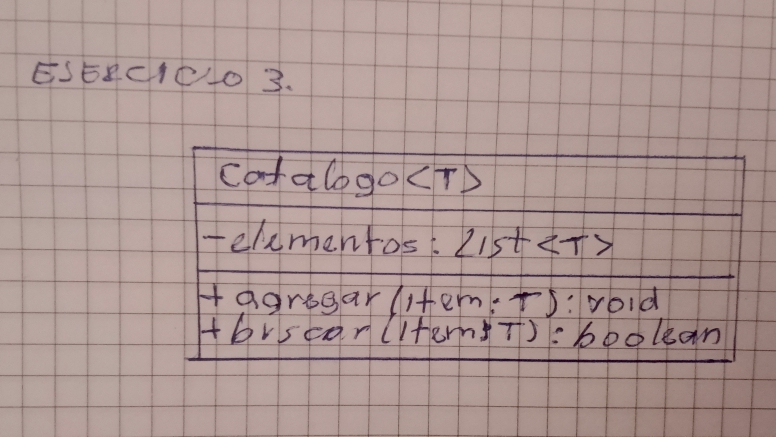 EJERCICIO 3.
Catalogo<T>
-elementos: List<T>
+ agregar(item: T): void
+ buscar(item: T): boolean